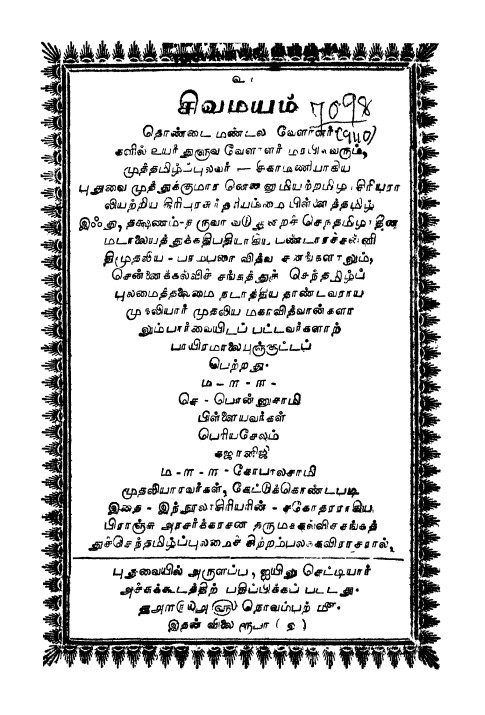 உ
சிவமயம்
7098
(940)
தொண்டை மண்டல வேளாளர்
களில் உயர் துளுவ வேளாளர் மரபினவரும்,
முத்தமிழ்ப்புலவர் — சிகாமணியாகிய
புதுவை முத்துக்குமார
லியற்றிய கிரிபுரசுந்தரியம்மை பிள்ளைத்தமிழ்
இஃது, தக்ஷணம்-தருவா வடு துறைச் செந்தமிழ்
மடாலயத்துக்கதிபதியாகிய பண்டாரச்சன்னி
திமுதலிய - பரமபரை வித்வ சனங்களாலும்,
சென்னைக்கல்விச் சங்கத்துச் செந்தமிழ்ப்
புலமைத்தலைமை நடாத்திய தாண்டவராய
முதலியார் முதலிய மகாவித்வான்களா
லும்பார்வையிடப் பட்டவர்களாற்
பாயிரமாலைபுஞ்சூட்டப்
பெற்றது.
ம - ள - ள -
செ - பொன்னுசாமி
பிள்ளையவர்கள்
பெரியசேலம்
கஜானிஜி
ம - ள - ள - கோபாலசாமி
முதலியாரவர்கள், கேட்டுக்கொண்டபடி
இதை - இந்நூலாகிரியரின் - சகோதரராகிய
பிராஞ்சு அரசர்க்கரசன தருமக்கல்விச்சங்கத்
துச்செந்தமிழ்ப்புலமைச் சிற்றம்பலக்கவிராசரால்,
புதுவையில் அருளப்ப, ஐயினு செட்டியார்
அச்சுக்கூடத்திற் பதிப்பிக்கப் பட்டது.
நொவம்பற் மீ.
இதன் விலை ரூபா ( ௧ )